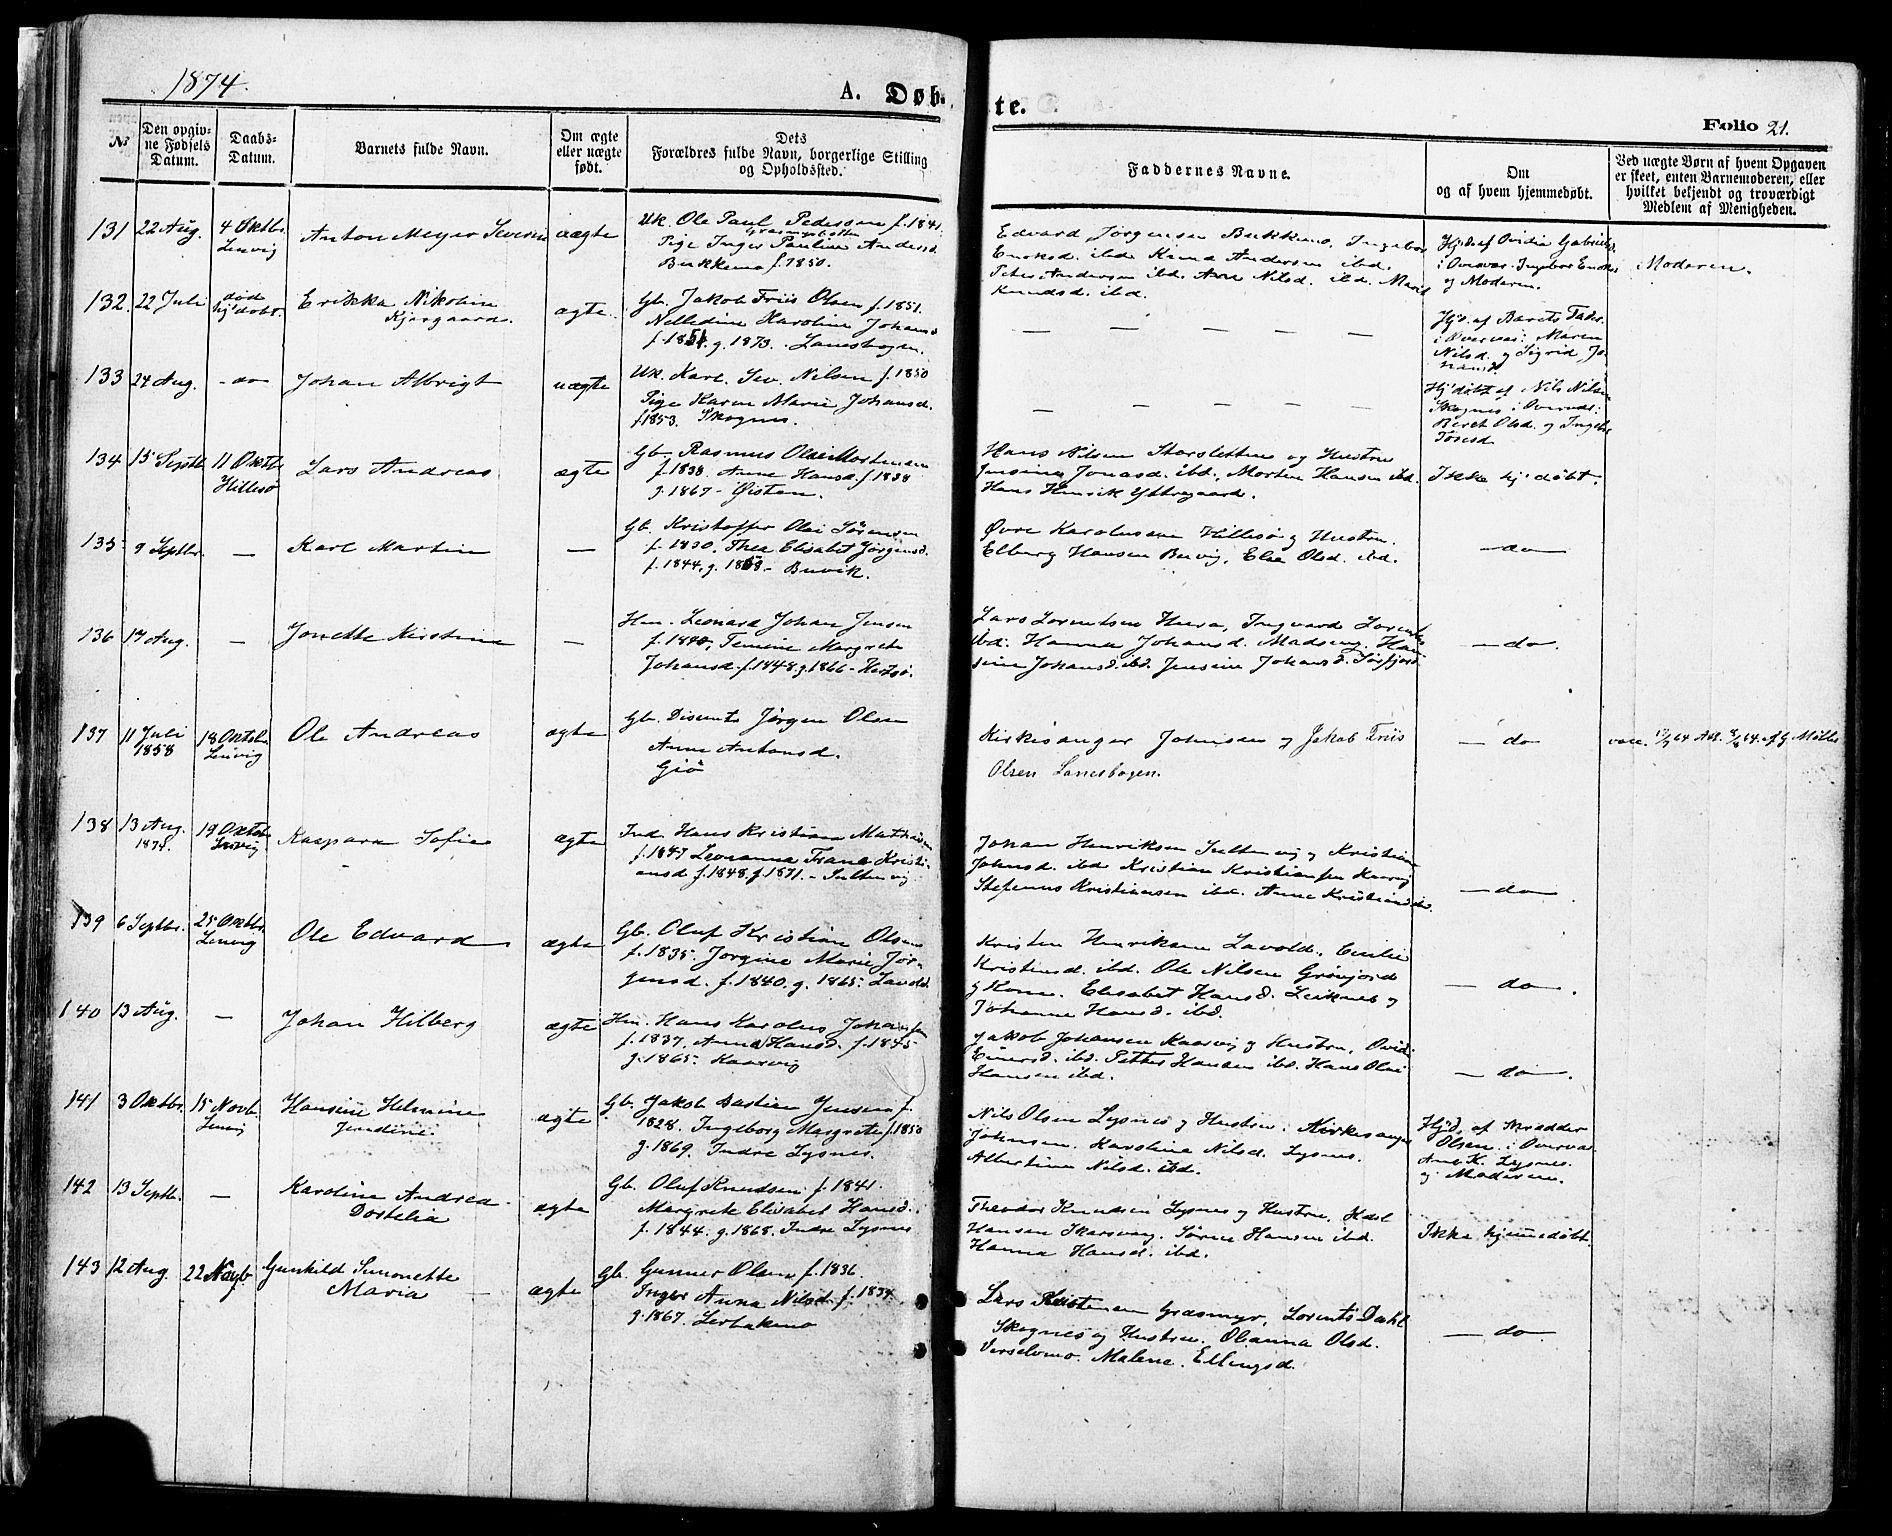 1874.
A. Døb-
te.
Folio 21.
№
Den opgivne Fødsels Datum.
Daabs-Datum.
Barnets fulde Navn.
Om ægte eller uægte født.
Dets
Forældres fulde Navn, borgerlige Stilling
og Opholdssted.
Faddernes Navne.
Om
og af hvem hjemmedøbt.
Ved uægte Børn af hvem Opgaven
er skeet, enten Barnemoderen, eller
hvilket bekjendt og troværdigt
Medlem af Menigheden.
131 22 Aug. 4 Oktbr. Lenvig
Anton Meyer Severin
uægte
Uk. Ole Paul Pedersen f. 1841.
Pige Inger Pauline Andersd.
Bukkemo f. 1850.
Edvard Jørgensen Bukkemo, Ingebor
Enoksd. ibd. Knud Andersen ibd.
Peter Andersen ibd. Ane Nilsd. ibd. Marit
Knudsd. ibd.
Hj'd. af Ovidia Gabrielsd.
i Overvær. Ingebor Enoks
og Moderen.
Moderen.
132. 22 Juli død hj'døbt.
Erikka Nikolin
Kjergaard.
ægte
Gb. Jakob Friis Olsen f. 1851.
Nelledine Karoline Johansd
f. 1851. g. 1873. Lanesbogen.
— — — — —
Hj'd. af Barets Fader
i Overvær: Maren
Nilsd. og Sigrid Jo-
hansd.
133 24 Aug. - do
Johan Albrigt
uægte
Uk. Karl Sev. Nilsen f. 1850
Pige Karen Marie Johansd.
f. 1853. Skognes.
— — — — —
Hj'døbt af Nils Nilsen
Skognes i Overvær:
Beret Olsd. og Ingebr
Toresd.
134 15 Septb. 11 Oktbr. Hillesø
Lars Andreas
ægte
Gb. Rasmus Olai Mortensen
f. 1838 Anne Hansd. f. 1838
g. 1867 - Øisten.
Hans Nilsen Storsletten og Hustru
Jensine Jonasd. ibd., Morten Hansen ibd.
Hans Henrik Yttregaard.
Ikke hj'døbt.
135. 9 Septbr. —
Karl Martin
—
Gb. Kristoffer Olai Sørensen
f. 1830. Thea Elisabet Jørgensd.
f. 1844, g. 1868 - Buvik.
Øvre Karolussen Hillesø og Hustru.
Elberg Hansen Buvig, Else Olsd. ibd.
— do —
136 17 Aug. —
Jonette Kirstine
—
Hm. Leonard Johan Jensen
f. 1840, Temine Margrete
Johansd. f. 1848 g. 1866 - Hertsø.
Lars Lorentsen Husø, Ingvard Lorents
ibd. Hanna Johansd. Madseng. Han
sine Johansd. ibd. Jensine Johansd. Sørfjord
— do.
137 11 Juli 1858 18 Oktob. Lenvig
Ole Andreas
ægte
Gb. Dismets Jørgen Olsen
Anne Antonsd.
Giø
Kirkesanger Johnsen og Jakob Friis
Olsen Lanesbogen.
— do
vacc. 17/7 64 Att. 9/8 64. af G Møller
138 13 Aug. 1874. 19 Oktob. Lenvig
Kaspara Sofie
ægte
Ind. Hans Kristian Mathisen
f. 1847 Leonanna Frana Kristi-
ansd f. 1848. g. 1871. - Sultenvig
Johan Henriksen Sultenvig og Kristian
Johnsd. ibd Kristian Kristiansen Kaarvig
Stefanus Kristiansen ibd. Anne Kristiansd ibd.
— do —
139 6 Septbr. 25 Oktbr. Lenvig
Ole Edvard
ægte
Gb. Oluf Kristian Olsen
f. 1835. Jørgine Marie Jør-
gensd. f. 1840. g. 1865. Lavold
Kristen Henriksen Lavold. Emilie
Kristensd. ibd. Ole Nilsen Grønjord
og Kone. Elisabet Hansd. Leiknes og
Johanne Hansd. ibd.
— do —.
140 13 Aug. —
Johan Hilberg
ægte
Hm. Hans Karolus Johansen
f. 1837. Anna Hansd. f. 1845
g. 1865. Kaarvig
Jakob Johansen Kaarvig og Hustru, Ovidi
Einersd. ibd. Petter Hansen ibd. Hans Olai
Hansen ibd.
— do —.
141 3 Oktbr. 15 Novb. Lenvig
Hansine Helmine
Jendine
ægte
Gb. Jakob Bastian Jensen f.
1828. Ingeborg Margrete f. 1850
g. 1869. Indre Lysnes.
Nils Olsen Lysnes og Hustru. Kirkesanger
Johnsen. Karoline Nilsd. Lysnes.
Albertine Nilsd. ibd.
Hj'd. af Skrædder
Olsen i Overvær
Ane K. Lysnes.
og Moderen.
142 13 Septb. —
Karoline Andrea
Dortelia
ægte
Gb. Oluf Knudsen f. 1841.
Margrete Elisabet Hansd.
f. 1844. g. 1868. Indre Lysnes
Theodor Knudsen Lysnes og Hustru, Karl
Hansen Skarsvaag. Søren Hansen ibd.
Hanna Hansd. ibd.
Ikke hjemmedøbt.
143 12 Aug. 22 Novb.
Gunhild Simonette
Maria
ægte
Gb. Gunner Olsen f. 1836.
Inger Anna Nilsd. f. 1834.
g. 1867. Lerbakmo
Lars Græsmyr, Lorents Dahl
Skognes og Hustru. Oleanna Olsd.
Malene Ellingsd.
— do —.